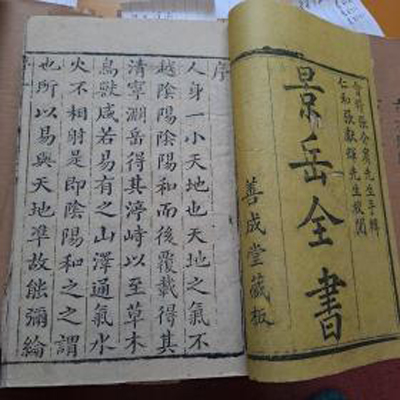 會稽張介賓先生手輯
仁和張獻輝先生校閱
景岳全書
善成堂藏板
序
人身一小天地也天地之氣不
越陰陽陰陽和而後覆載得其
清寧淵岳得其渟峙以至草木
鳥獸咸若易有之山澤通氣水
火不相射是即陰陽和之之謂
也所以易與天地準故能彌綸